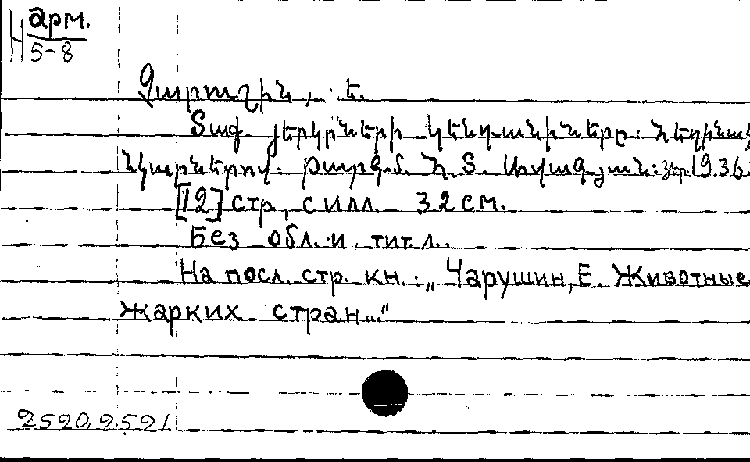 Н арм.
5-8
Չարուշին, Ե.
Տաք երկրների կենդանիները: Հեղինակ
նկարներով: Թարգմ. Հ. Տ. Եր. 1936.
[12] стр., с илл. 32 см.
Без обл. и тит. л.
На посл. стр. кн.: „Чарушин, Е. Животные
жарких стран..."
2520, 2521